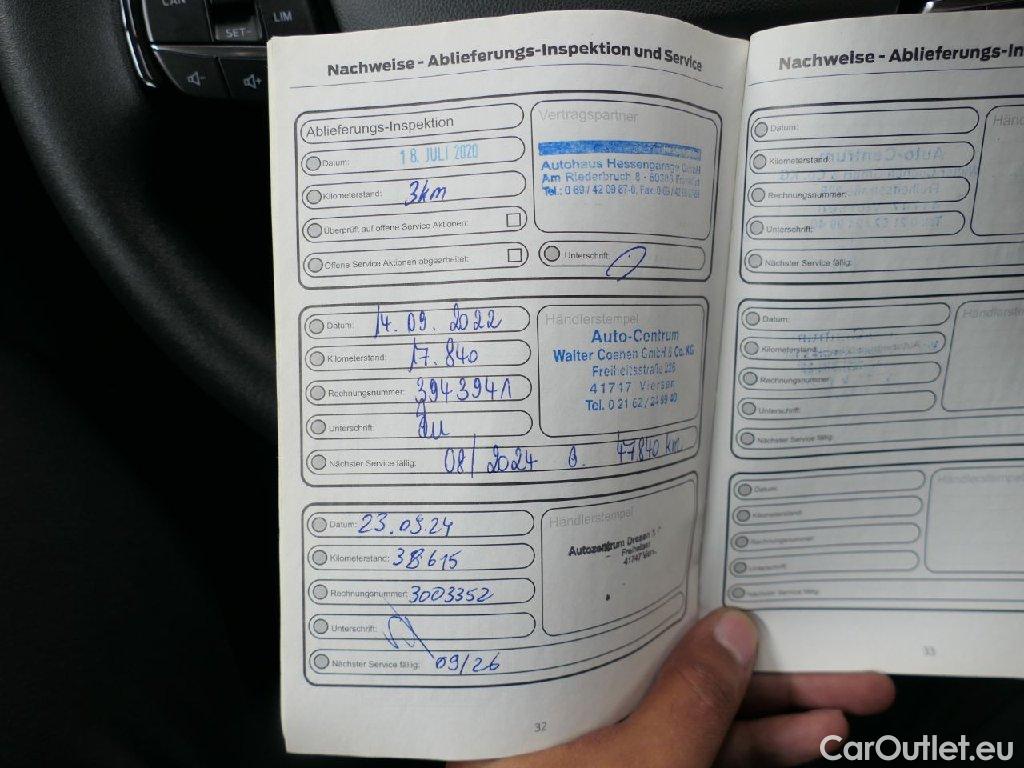 LIM
SET-
Nachweise - Ablieferungs-Inspektion und Service
Ablieferungs-Inspektion
Datum: 18. JULI 2020
Kilometerstand: 3km
Überprüft auf offene Service Aktionen:
Offene Service Aktionen abgearbeitet:
Vertragspartner
Autohaus Hessengarage GmbH
Am Riederbruch 8 - 60386 Frankfurt
Tel.: 0 69 / 42 09 87-0, Fax:
Unterschrift:
Datum: 14. 09. 2022
Kilometerstand: 17. 840
Rechnungsnummer: 3943941
Unterschrift:
Nächster Service fällig: 08/2024 o. 47840 km
Händlerstempel
Auto-Centrum
Walter Coenen GmbH & Co. KG
Freiheitsstraße
41747 Viersen
Tel. 0 21 62 /
Datum: 23.09.24
Kilometerstand: 38615
Rechnungsnummer: 3003352
Unterschrift:
Nächster Service fällig: 09/26
Händlerstempel
Autozentrum Dresen
Freiheitsstr
41747 Vier
32
Nachweise - Ablieferungs-In
Datum:
Kilometerstand:
Rechnungsnummer:
Unterschrift:
Nächster Service fällig:
Händ
Datum:
Kilometerstand:
Rechnungsnummer:
Unterschrift:
Nächster Service fällig:
Händlerste
Datum:
Kilometerstand:
Rechnungsnummer:
Unterschrift:
Nächster Service fällig:
Händlerstempel
33
CarOutlet.eu